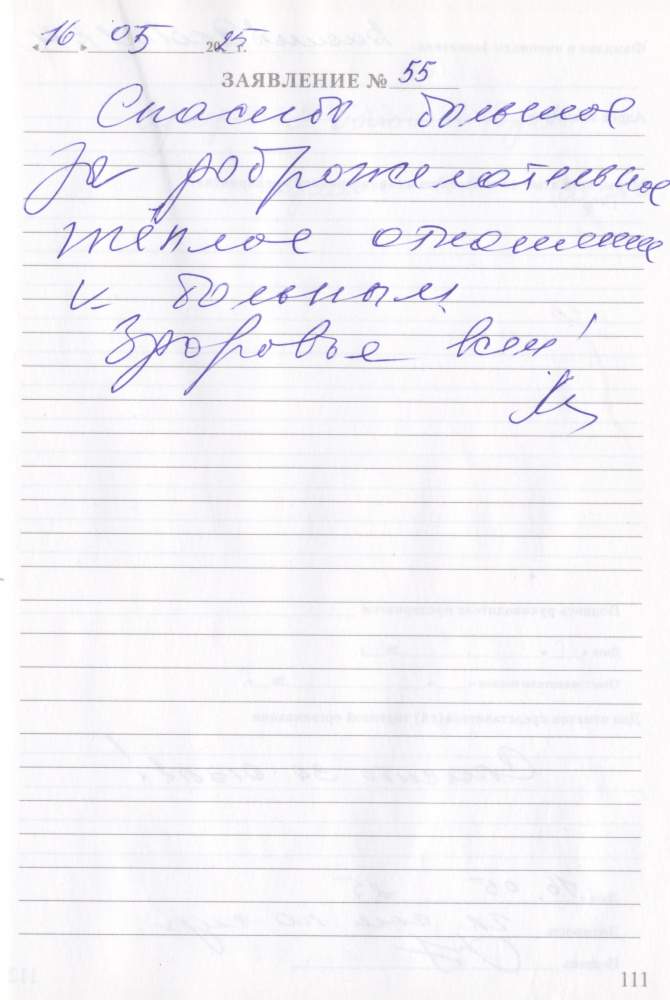 «16» 05 2025 г.
ЗАЯВЛЕНИЕ № 55
Спасибо большое
за доброжелательное
тёплое отношение
к больным.
Здоровье всем!
111